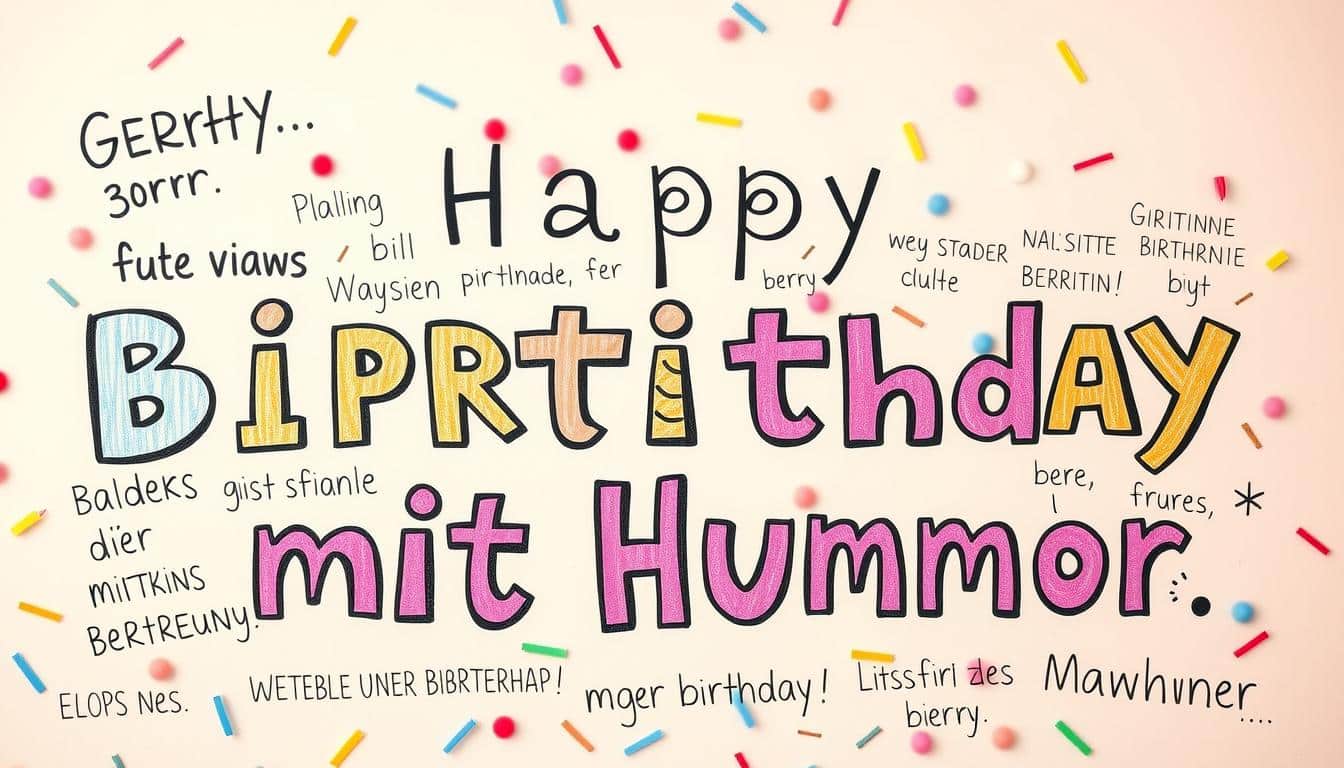 GERrHY...
3orrr.
fute viaws
Plalling
bill
Waysien
pirtlnade, fer
Happy
berry
wey STADER
clulte
NAL:SITTE
BERRITIN!
GIRITINNE
BIRTHRNIE
biyt
BiPRTithdAY
Baldeks
diër
miltkins
BeRTREUNY.
gist sfianle
mit Hummor.
bere,
frures, *
ELOPS Nes.
WETEBLE UNER BIBRTERHAP!
mger birthday!
Litssfirl des
bierry.
Mawhvner....